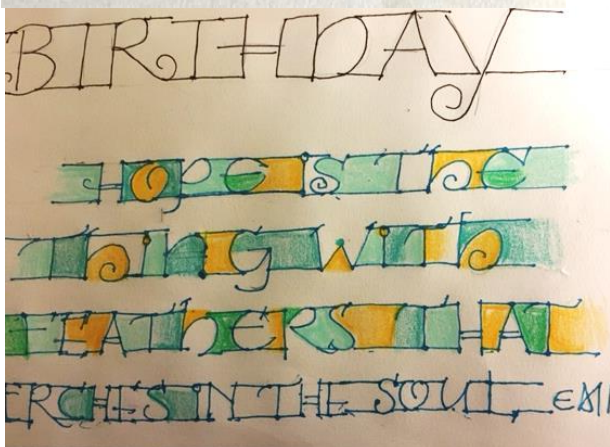 BIRTHDAY
Hope is the
Thing with
FEATHERS THAT
ERCHES IN THE SOUL